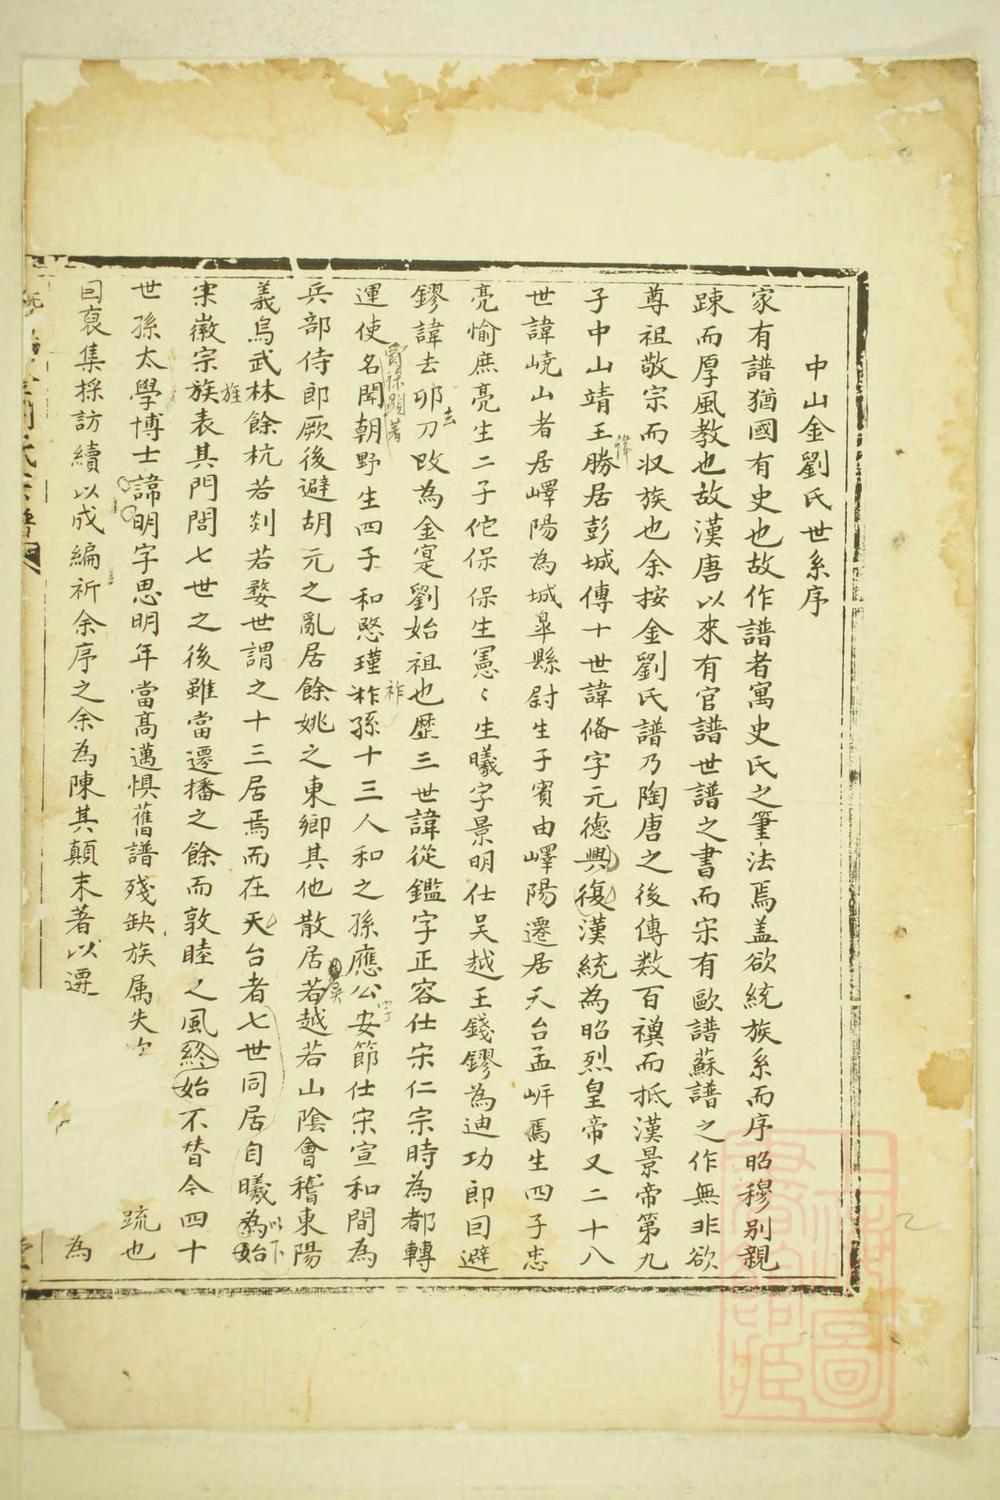 中山金劉氏世系序
家有譜猶國有史也故作譜者寓史氏之筆法焉蓋欲統族系而序昭穆別親
踈而厚風教也故漢唐以來有官譜世譜之書而宋有歐譜蘇譜之作無非欲
尊祖敬宗而収族也余按金劉氏譜乃陶唐之後傳数百禩而抵漢景帝第九
子中山靖王勝居彭城傳十世諱偹字元德興復漢統為昭烈皇帝又二十八
諱
世諱峣山者居嶧陽為城皐縣尉生子賓由嶧陽遷居天台孟岸焉生四子忠
亮愉庶亮生二子佗保保生憲〻生曦字景明仕吴越王錢鏐為迪功郎因避
鏐諱去卯刀改為金寔劉始祖也歷三世諱從鑑字正容仕宋仁宗時為都轉
去
運使名聞朝野生四子和愍瑾祚孫十三人和之孫應公安節仕宋宣和間為
爵祿顯著
祚
字
兵部侍郎厥後避胡元之亂居餘姚之東鄉其他散居若越若山陰會稽東陽
義烏武林餘杭若剡若婺世謂之十三居焉而在天台者七世同居自曦為始
以下
宋徽宗族表其門閭七世之後雖當遷播之餘而敦睦之風終始不替今四十
旌
世孫太學博士諱明字思明年當高邁惧舊譜殘缺族属失次 䟽也
囙裒集採訪續以成編祈余序之余為陳其顛末著以遷 為